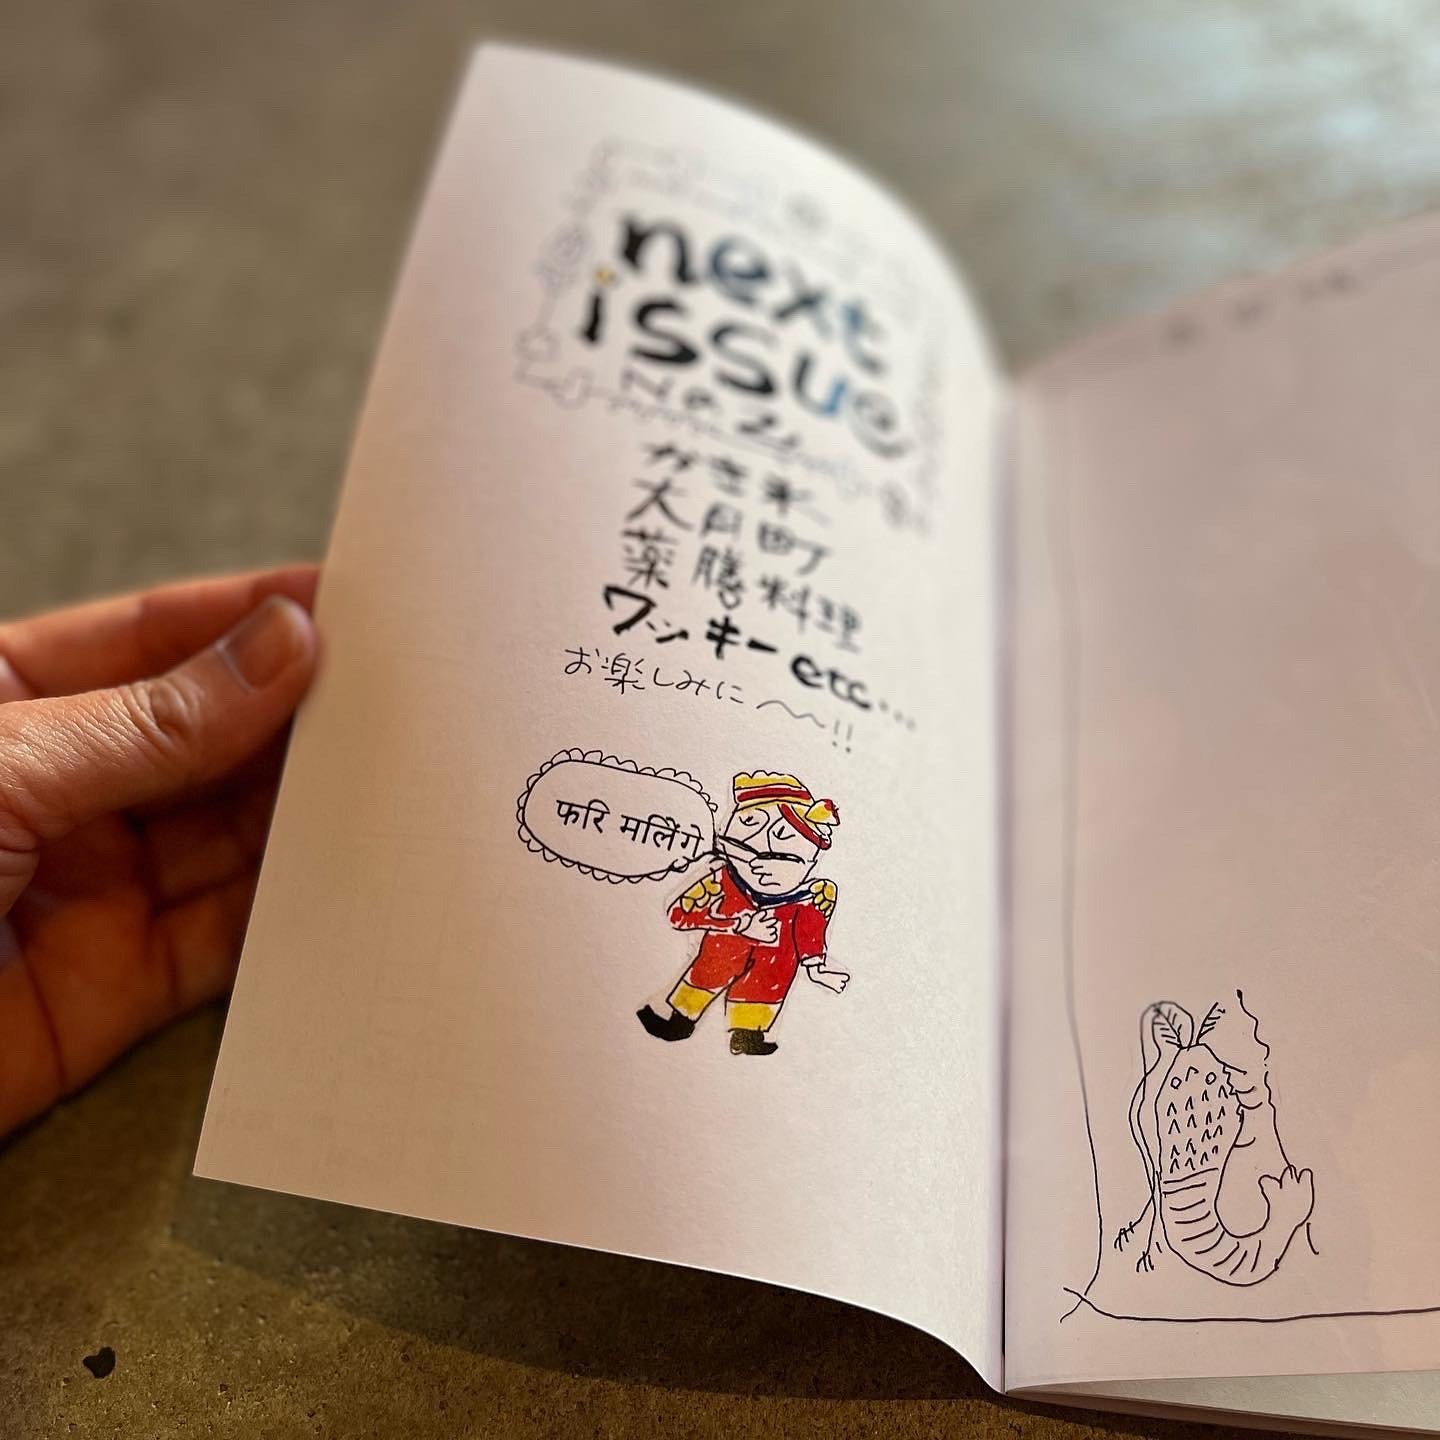 next
issue
No.2
かき氷
大月町
薬膳料理
ワッキー etc...
お楽しみに〜〜!!
फरि मलिंगे